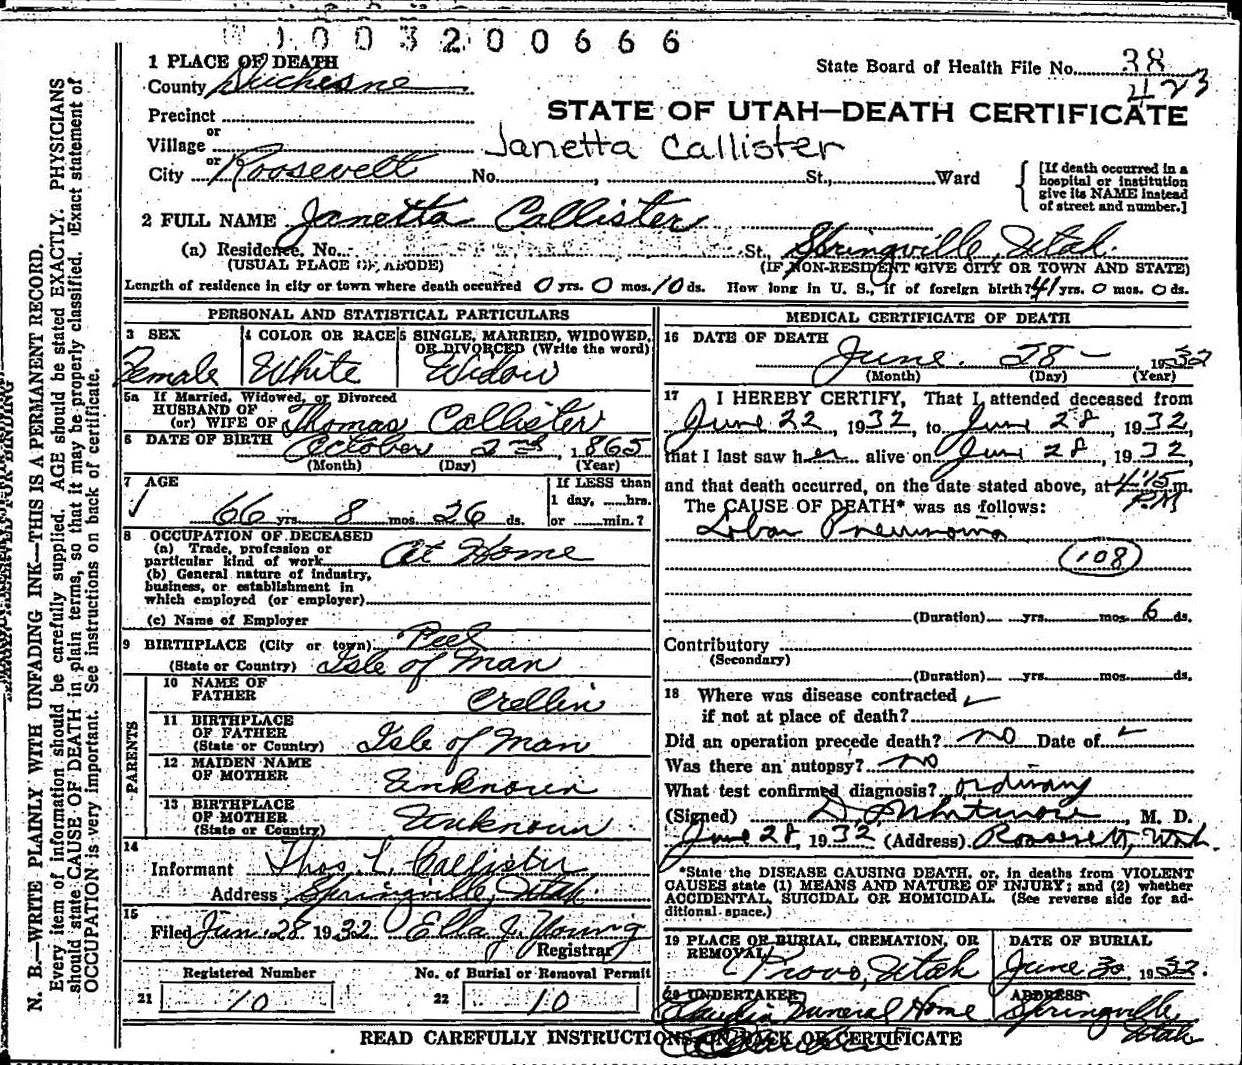 1003200666
1 PLACE OF DEATH
County Duchesne
State Board of Health File No. 38
423
Precinct
STATE OF UTAH—DEATH CERTIFICATE
or
Village
Janetta Callister
or
City Roosevelt No. , St., Ward
[If death occurred in a hospital or institution give its NAME instead of street and number.]
2 FULL NAME Janetta Callister
(a) Residence, No. St., Springville, Utah.
(USUAL PLACE OF ABODE) (IF NON-RESIDENT GIVE CITY OR TOWN AND STATE)
Length of residence in city or town where death occurred 0 yrs. 0 mos. 10 ds. How long in U. S., if of foreign birth? 41 yrs. 0 mos. 0 ds.
PERSONAL AND STATISTICAL PARTICULARS
3 SEX
Female
4 COLOR OR RACE
White
5 SINGLE, MARRIED, WIDOWED, OR DIVORCED (Write the word)
Widow
5a If Married, Widowed, or Divorced
HUSBAND OF
(or) WIFE OF Thomas Callister
6 DATE OF BIRTH October 2nd, 1865
(Month) (Day) (Year)
7 AGE
66 yrs. 8 mos. 26 ds.
If LESS than
1 day, hrs.
or min.?
8 OCCUPATION OF DECEASED
(a) Trade, profession or
particular kind of work At Home
(b) General nature of industry,
business, or establishment in
which employed (or employer)
(c) Name of Employer
9 BIRTHPLACE (City or town) Peel
(State or Country) Isle of Man
PARENTS
10 NAME OF
FATHER Crellin
11 BIRTHPLACE
OF FATHER
(State or Country) Isle of Man
12 MAIDEN NAME
OF MOTHER Unknown
13 BIRTHPLACE
OF MOTHER
(State or Country) Unknown
14
Informant Thos. L. Callister
Address Springville, Utah.
15
Filed June 28 1932 Ella J. Young
Registrar
Registered Number
21 10
No. of Burial or Removal Permit
22 10
MEDICAL CERTIFICATE OF DEATH
16 DATE OF DEATH
June. 28 - , 1932
(Month) (Day) (Year)
17 I HEREBY CERTIFY, That I attended deceased from
June 22, 1932, to June 28, 1932,
that I last saw her alive on June 28, 1932,
and that death occurred, on the date stated above, at 4:15 m.
P.M
The CAUSE OF DEATH* was as follows:
Lobar Pneumonia
(108)
(Duration) yrs. mos. 6 ds.
Contributory
(Secondary)
(Duration) yrs. mos. ds.
18 Where was disease contracted
if not at place of death?
Did an operation precede death? no Date of
Was there an autopsy? no
What test confirmed diagnosis? ordinary
(Signed) Whitmore, M. D.
June 28, 1932 (Address) Roosevelt, Utah.
*State the DISEASE CAUSING DEATH, or, in deaths from VIOLENT
CAUSES state (1) MEANS AND NATURE OF INJURY; and (2) whether
ACCIDENTAL, SUICIDAL OR HOMICIDAL. (See reverse side for ad-
ditional space.)
19 PLACE OF BURIAL, CREMATION, OR
REMOVAL
Provo, Utah
DATE OF BURIAL
June 30, 1932.
20 UNDERTAKER
Funeral Home
ADDRESS
Springville,
Utah
READ CAREFULLY INSTRUCTIONS ON BACK OF CERTIFICATE
N. B.—WRITE PLAINLY WITH UNFADING INK—THIS IS A PERMANENT RECORD.
Every item of information should be carefully supplied. AGE should be stated EXACTLY. PHYSICIANS
should state CAUSE OF DEATH in plain terms, so that it may be properly classified. Exact statement of
OCCUPATION is very important. See instructions on back of certificate.